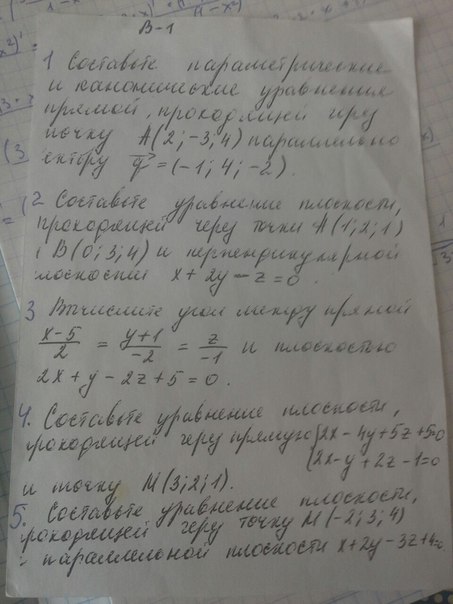 В-1
1 Составьте параметрические
и канонические уравнения
прямой, проходящей чру
точку А(2; -3; 4) параллельно
ектору q⃗ = (-1; 4; -2).
2 Составьте уравнение плоскости,
проходящей через точки А(1; 2; 1)
В(0; 3; 4) и перпендикулярной
плоскости x + 2y - z = 0.
3 Вычислите угол между прямой
(x-5)/2 = (y+1)/-2 = z/-1 и плоскостью
2x + y - 2z + 5 = 0.
4. Составьте уравнение плоскости,
проходящей черу прямую {2x - 4y + 5z + 5=0
{2x - y + 2z - 1 = 0
и точку М(3; 2; 1).
5. Составьте уравнение плоскости,
проходящей черу точку М(-2; 3; 4)
параллельной плоскости x + 2y - 3z + 4 =